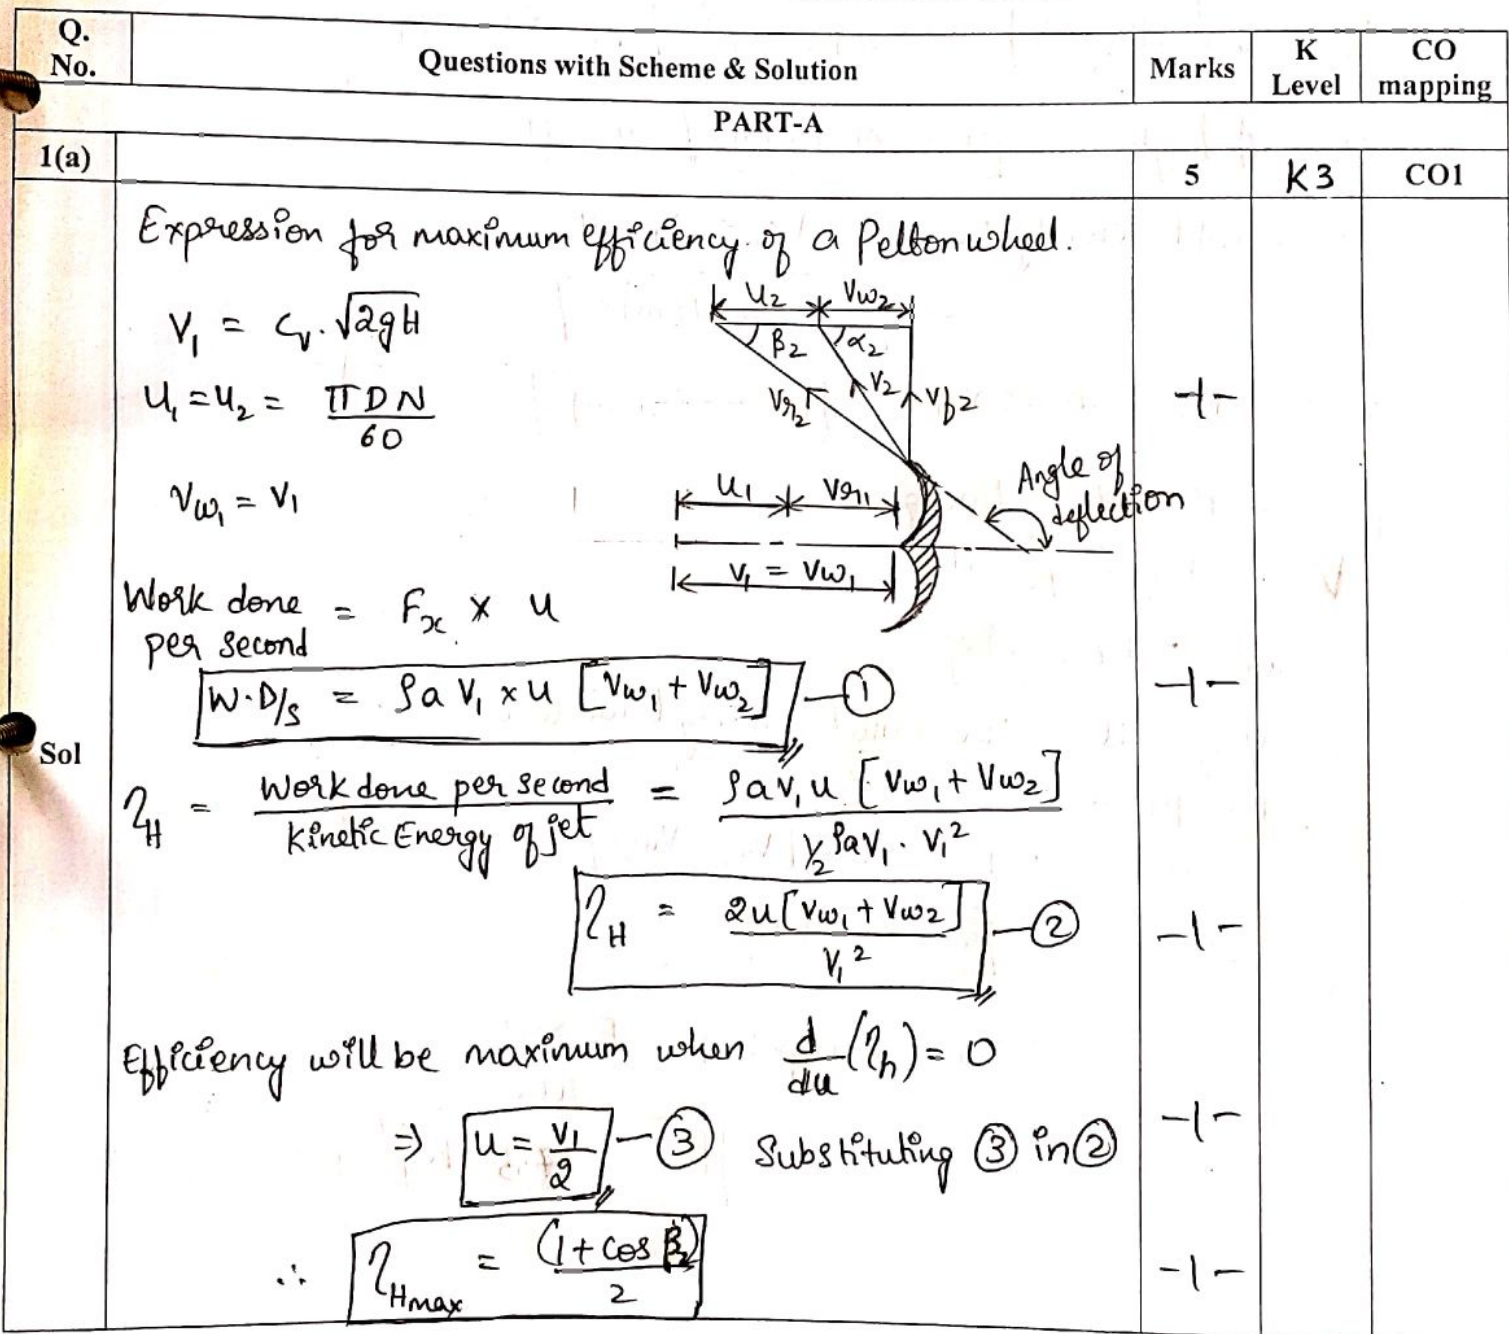 Q. No. Questions with Scheme & Solution Marks K Level CO mapping
PART-A
1(a) 5 K3 CO1
Expression for maximum efficiency of a Pelton wheel.
V₁ = Cᵥ. √2gH
U₁ = U₂ = πDN / 60
Vw₁ = V₁
U₂ Vw₂
β₂ α₂
Vr₂ V₂ Vf2
-1-
U₁ Vr₁
Angle of deflection
V₁ = Vw₁
Work done per second = Fx × u
W.D/s = ρaV₁ × u [Vw₁ + Vw₂] — ①
-1-
Sol
η_H = Work done per second / Kinetic Energy of jet = ρaV₁u [Vw₁ + Vw₂] / ½ ρaV₁ . V₁²
η_H = 2u[Vw₁ + Vw₂] / V₁² — ②
-1-
Efficiency will be maximum when d/du (ηh) = 0
⇒ u = V₁/2 — ③ Substituting ③ in ②
-1-
∴ η_Hmax = (1 + cos β₂) / 2
-1-